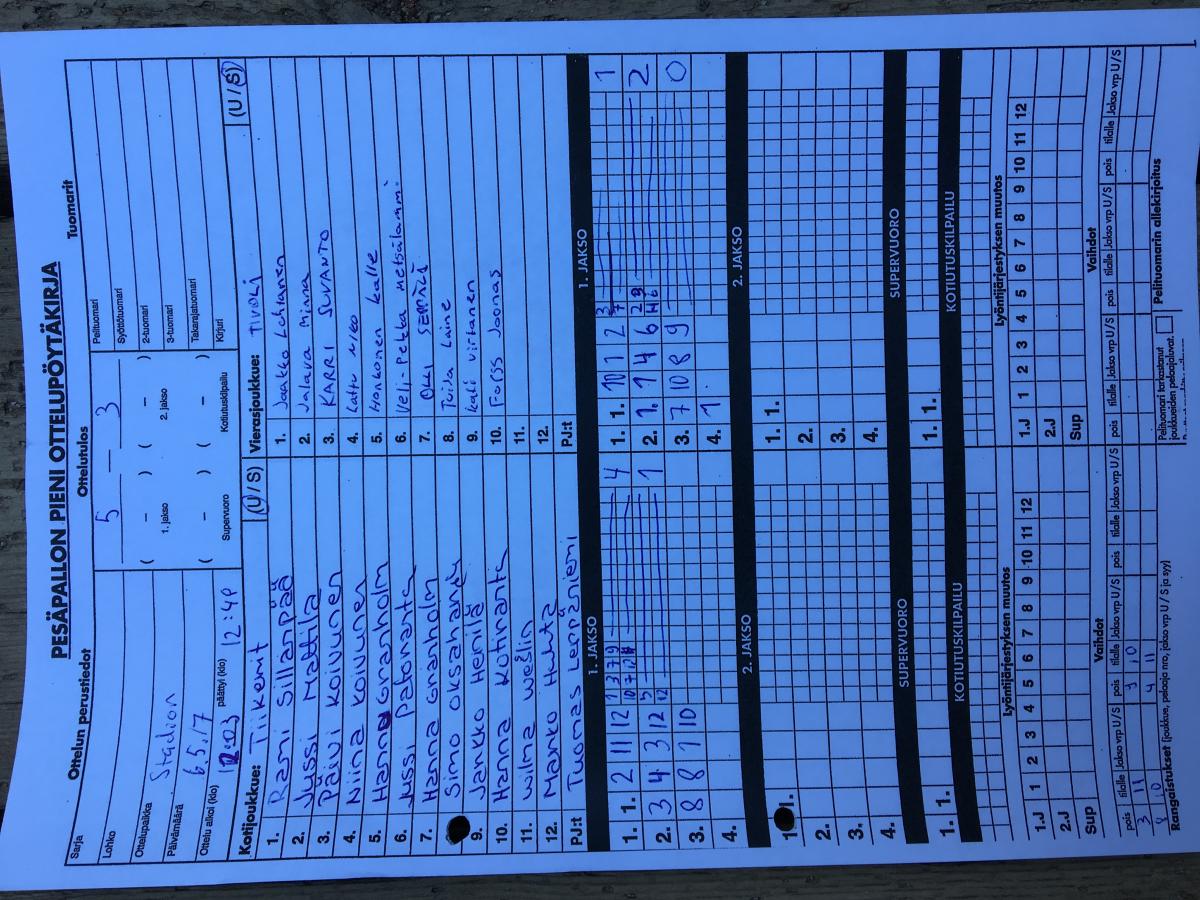 PESÄPALLON PIENI OTTELUPÖYTÄKIRJA
Ottelun perustiedot
Ottelutulos
Tuomarit
Sarja
5 — 3
Pelituomari
Lohko
Syöttötuomari
Ottelupaikka Stadion
( – ) ( – )
2-tuomari
1. jakso 2. jakso
Päivämäärä 6.5.17
3-tuomari
( – ) ( – )
Takarajatuomari
Ottelu alkoi (klo) päättyi (klo) 12:40
Supervuoro Kotiutuskilpailu
Kirjuri
Kotijoukkue: Tiikerit (U/S)
1. Rami Sillanpää
2. Jussi Mattila
3. Päivi Koivunen
4. Niina Koivunen
5. Hanna Granholm
6. Jussi Palovanta
7. Hanna Granholm
Simo Oksahandy
9. Jarkko Heinilä
10. Hanna Kotinanta
11. Wilma Weślin
12. Marko Huhta
PJ:t Tuomas Leppäniemi
Vierasjoukkue: TIVOLI (U/S)
1. Jaakko Lehtanen
2. Jalava Minna
3. KARRI SUVANTO
4. Lattu Niko
5. Honkonen Kalle
6. Veli-Pekka Metsälammi
7. OKU SEPPÄLÄ
8. Tuila Laine
9. Kati Virtanen
10. Forss Joonas
11.
12.
PJ:t
1. JAKSO
1. 1. 2 11 12 1 3 7 9 4
10 7 12 11
2. 3 4 3 12 5 1
12
3. 8 8 7 10
4.
2. JAKSO
1. 1.
2.
3.
4.
SUPERVUORO
1. 1.
KOTIUTUSKILPAILU
1. JAKSO
1. 1. 10 1 2 3 1
7
2. 1. 1 4 6 2 9 2
3. 7 10 8 9 0
4. 1
2. JAKSO
1. 1.
2.
3.
4.
SUPERVUORO
1. 1.
KOTIUTUSKILPAILU
Lyöntijärjestyksen muutos
1.J 1 2 3 4 5 6 7 8 9 10 11 12
2.J
Sup
Lyöntijärjestyksen muutos
1.J 1 2 3 4 5 6 7 8 9 10 11 12
2.J
Sup
Vaihdot
pois tilalle Jakso vrp U/S pois tilalle Jakso vrp U/S pois tilalle Jakso vrp U/S
3 11 9 10
8 10 4 11
Vaihdot
pois tilalle Jakso vrp U/S pois tilalle Jakso vrp U/S pois tilalle Jakso vrp U/S
Rangaistukset (joukkue, pelaaja nro, jakso vrp U/S ja syy)
Pelituomari tarkastanut
joukkueiden pelaajaluvat.
Pelituomarin allekirjoitus